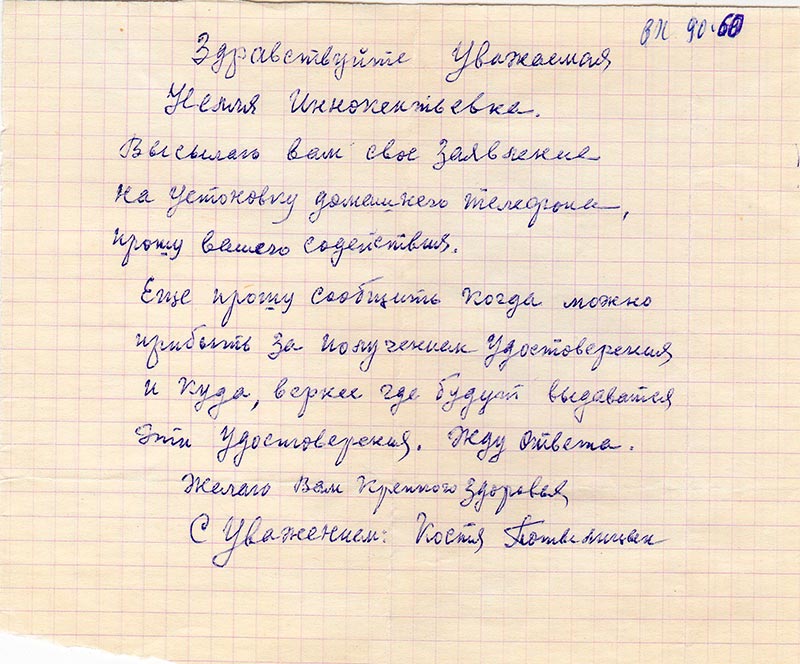 вх 90-60
Здравствуйте Уважаемая
Нелля Иннокентьевна.
Высылаю вам свое Заявление
на Устоновку домашнего телефона,
прошу вашего содействия.
Еще прошу сообщить когда можно
прибыть за получением Удостоверения
и куда, вернее где будут выдаватся
эти Удостоверения. Жду ответа.
Желаю Вам Крепкого Здоровья
С Уважением: Костя